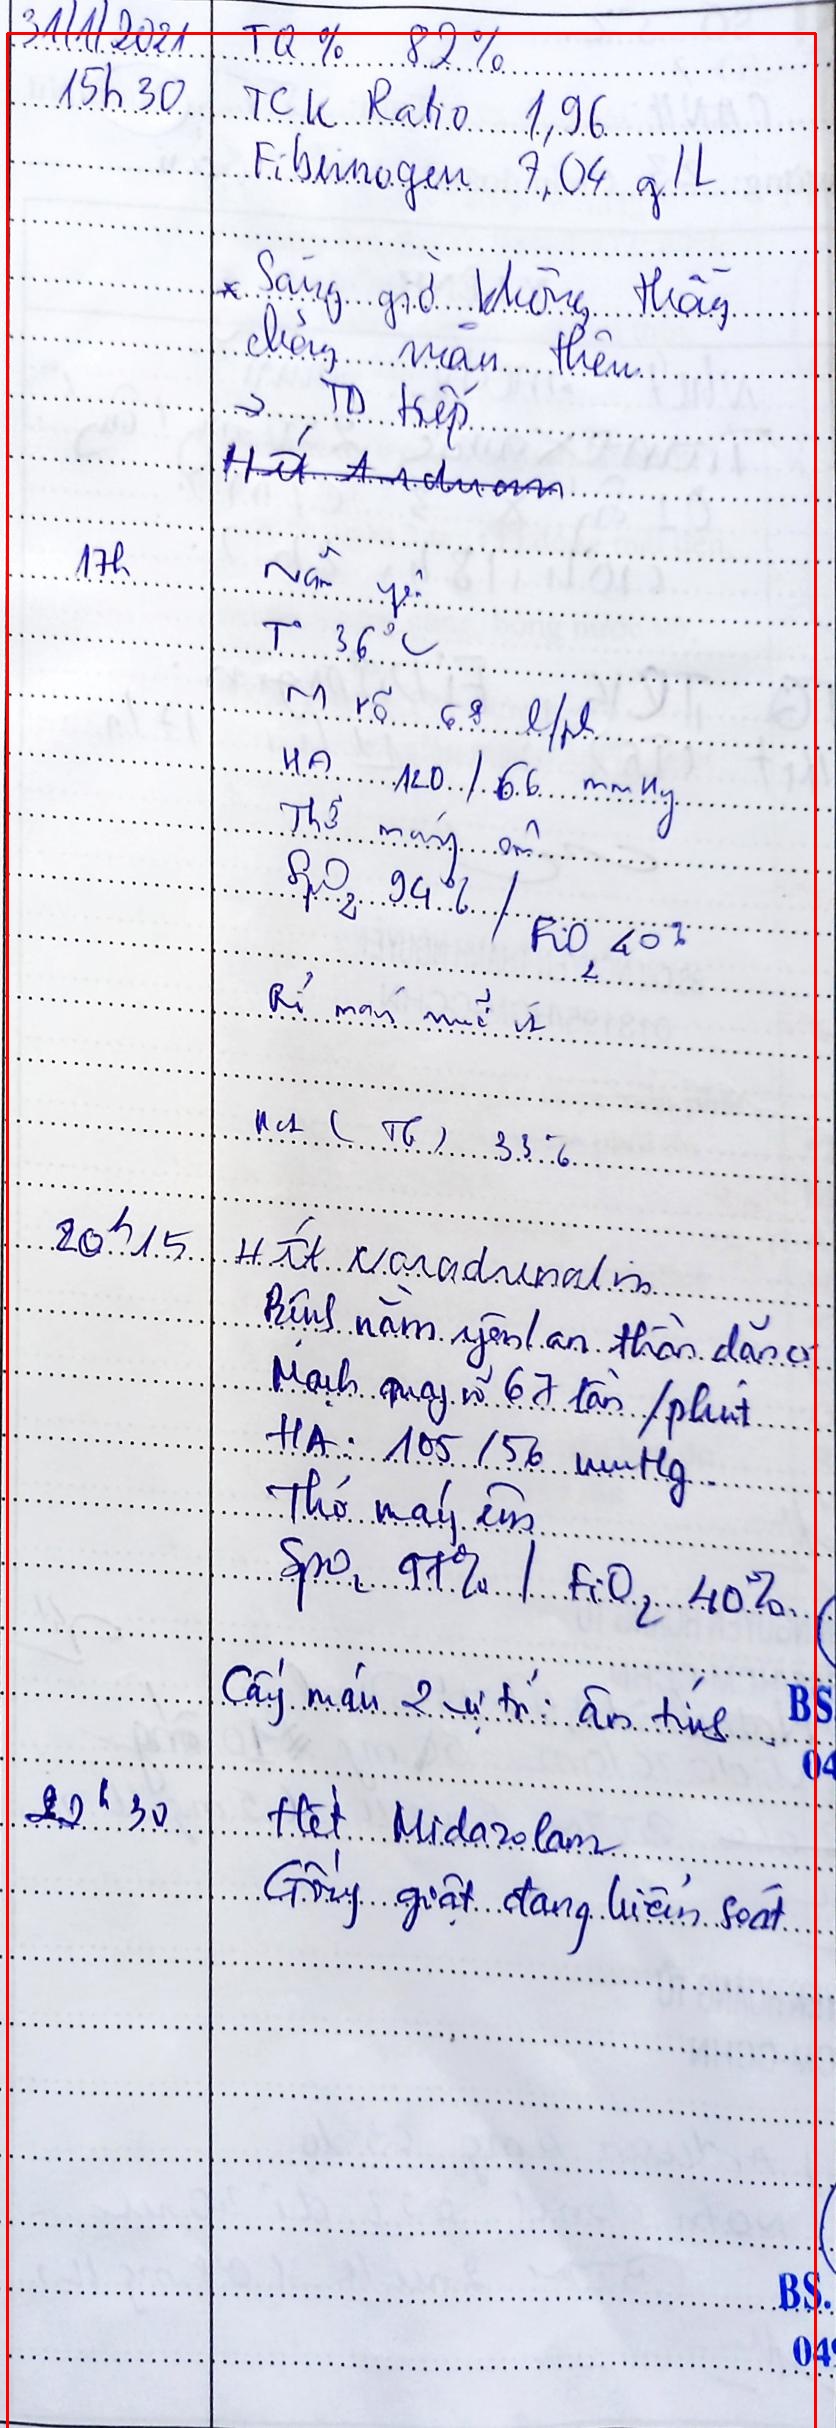 31/1/2021 TQ % 82%
15h30 TCK Ratio 1,96
Fibrinogen 7,04 g/L
* Sáng giờ không thấy
chảy máu thêm
-> TD tiếp
17h Nằm yên
T° 36°C
M rõ 68 l/ph
HA 120/66 mmHg
Thở máy êm
SpO2 94% /
FiO2 40%
Rỉ máu mũi ít
Hct (TG) 33%
20h15 Hết Noradrenalin
Bệnh nằm yên/an thần dãn cơ
Mạch quay rõ 67 lần/phút
HA: 105/56 mmHg
Thở máy êm
SpO2 97% / FiO2 40%
Cấy máu 2 vị trí: âm tính
BS.
04
22h30 Hết Midazolam
Gồng giật đang kiểm soát
BS.
049